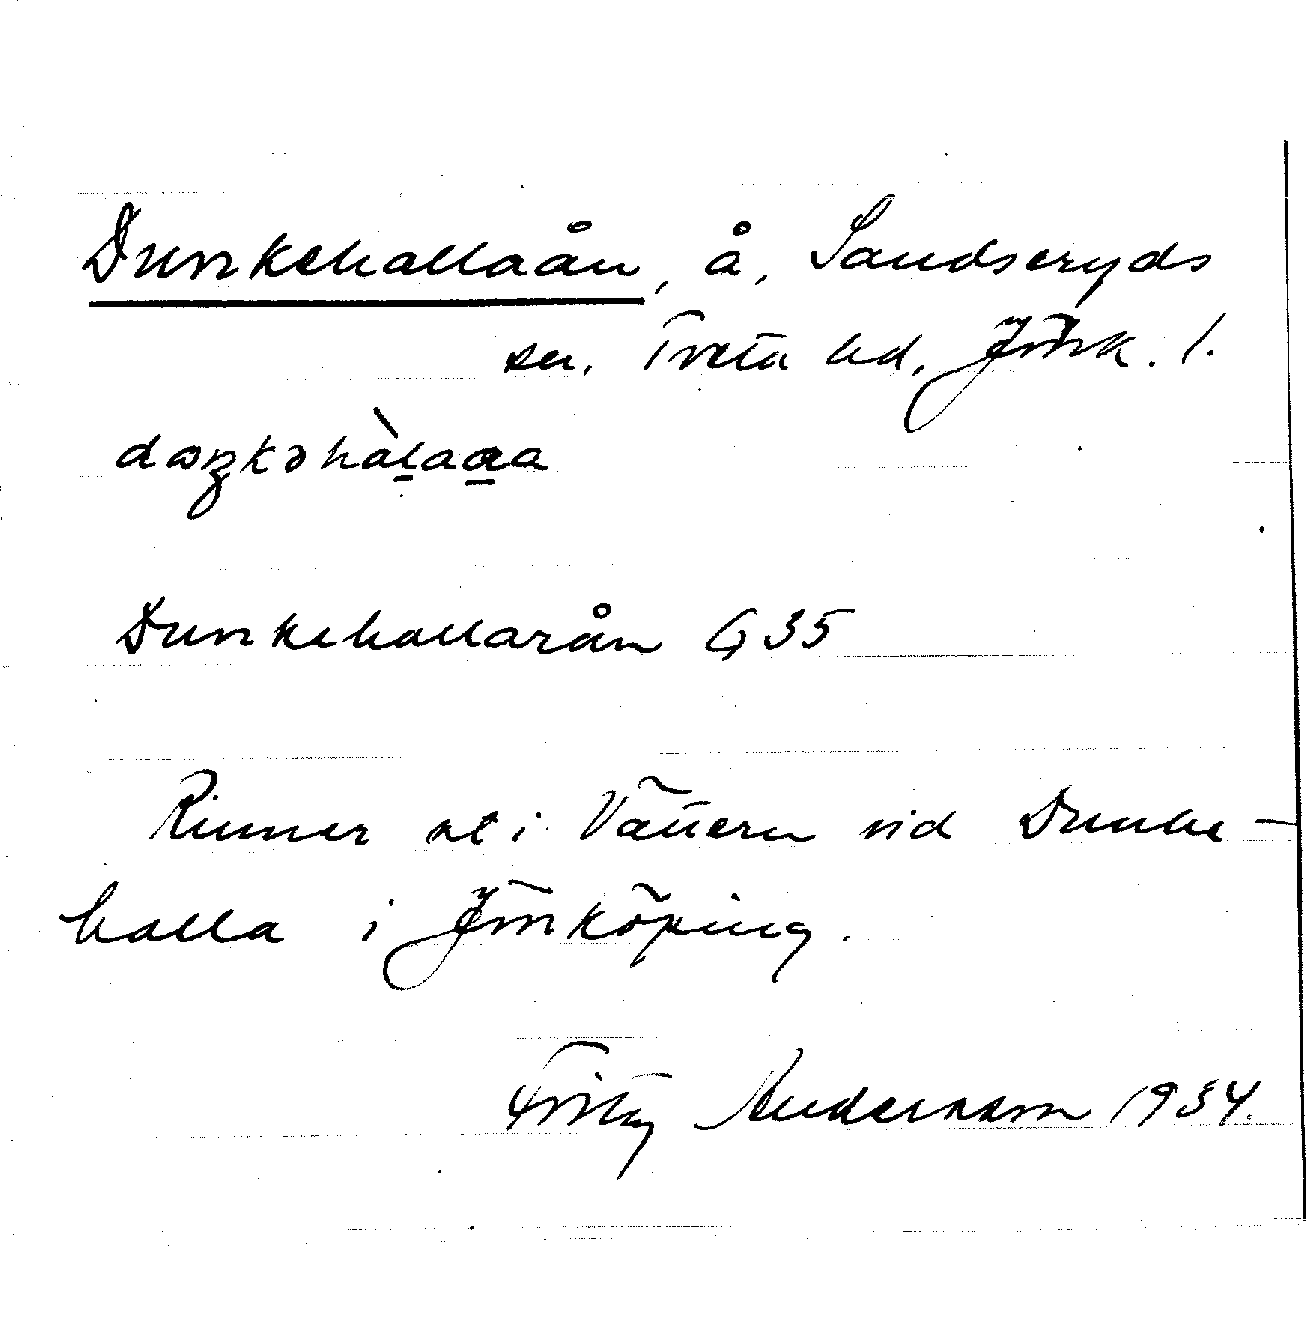 Dunkehallaån, å, Sandseryds
sn, Tveta hd, Jönk. l.
Dunkehallarån G 35
Rinner ut i Vättern vid Dunke-
halla i Jönköping.
Fritz Andersson 1934.